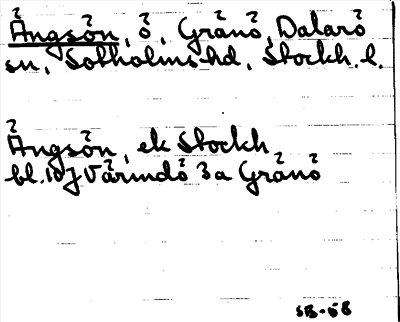 Ängsön, ö, Gränö, Dalarö
sn, Sotholms hd, Stockh. l.
Ängsön, ek Stockh
bl. 10 J Värmdö 3 a Gränö
SB-58